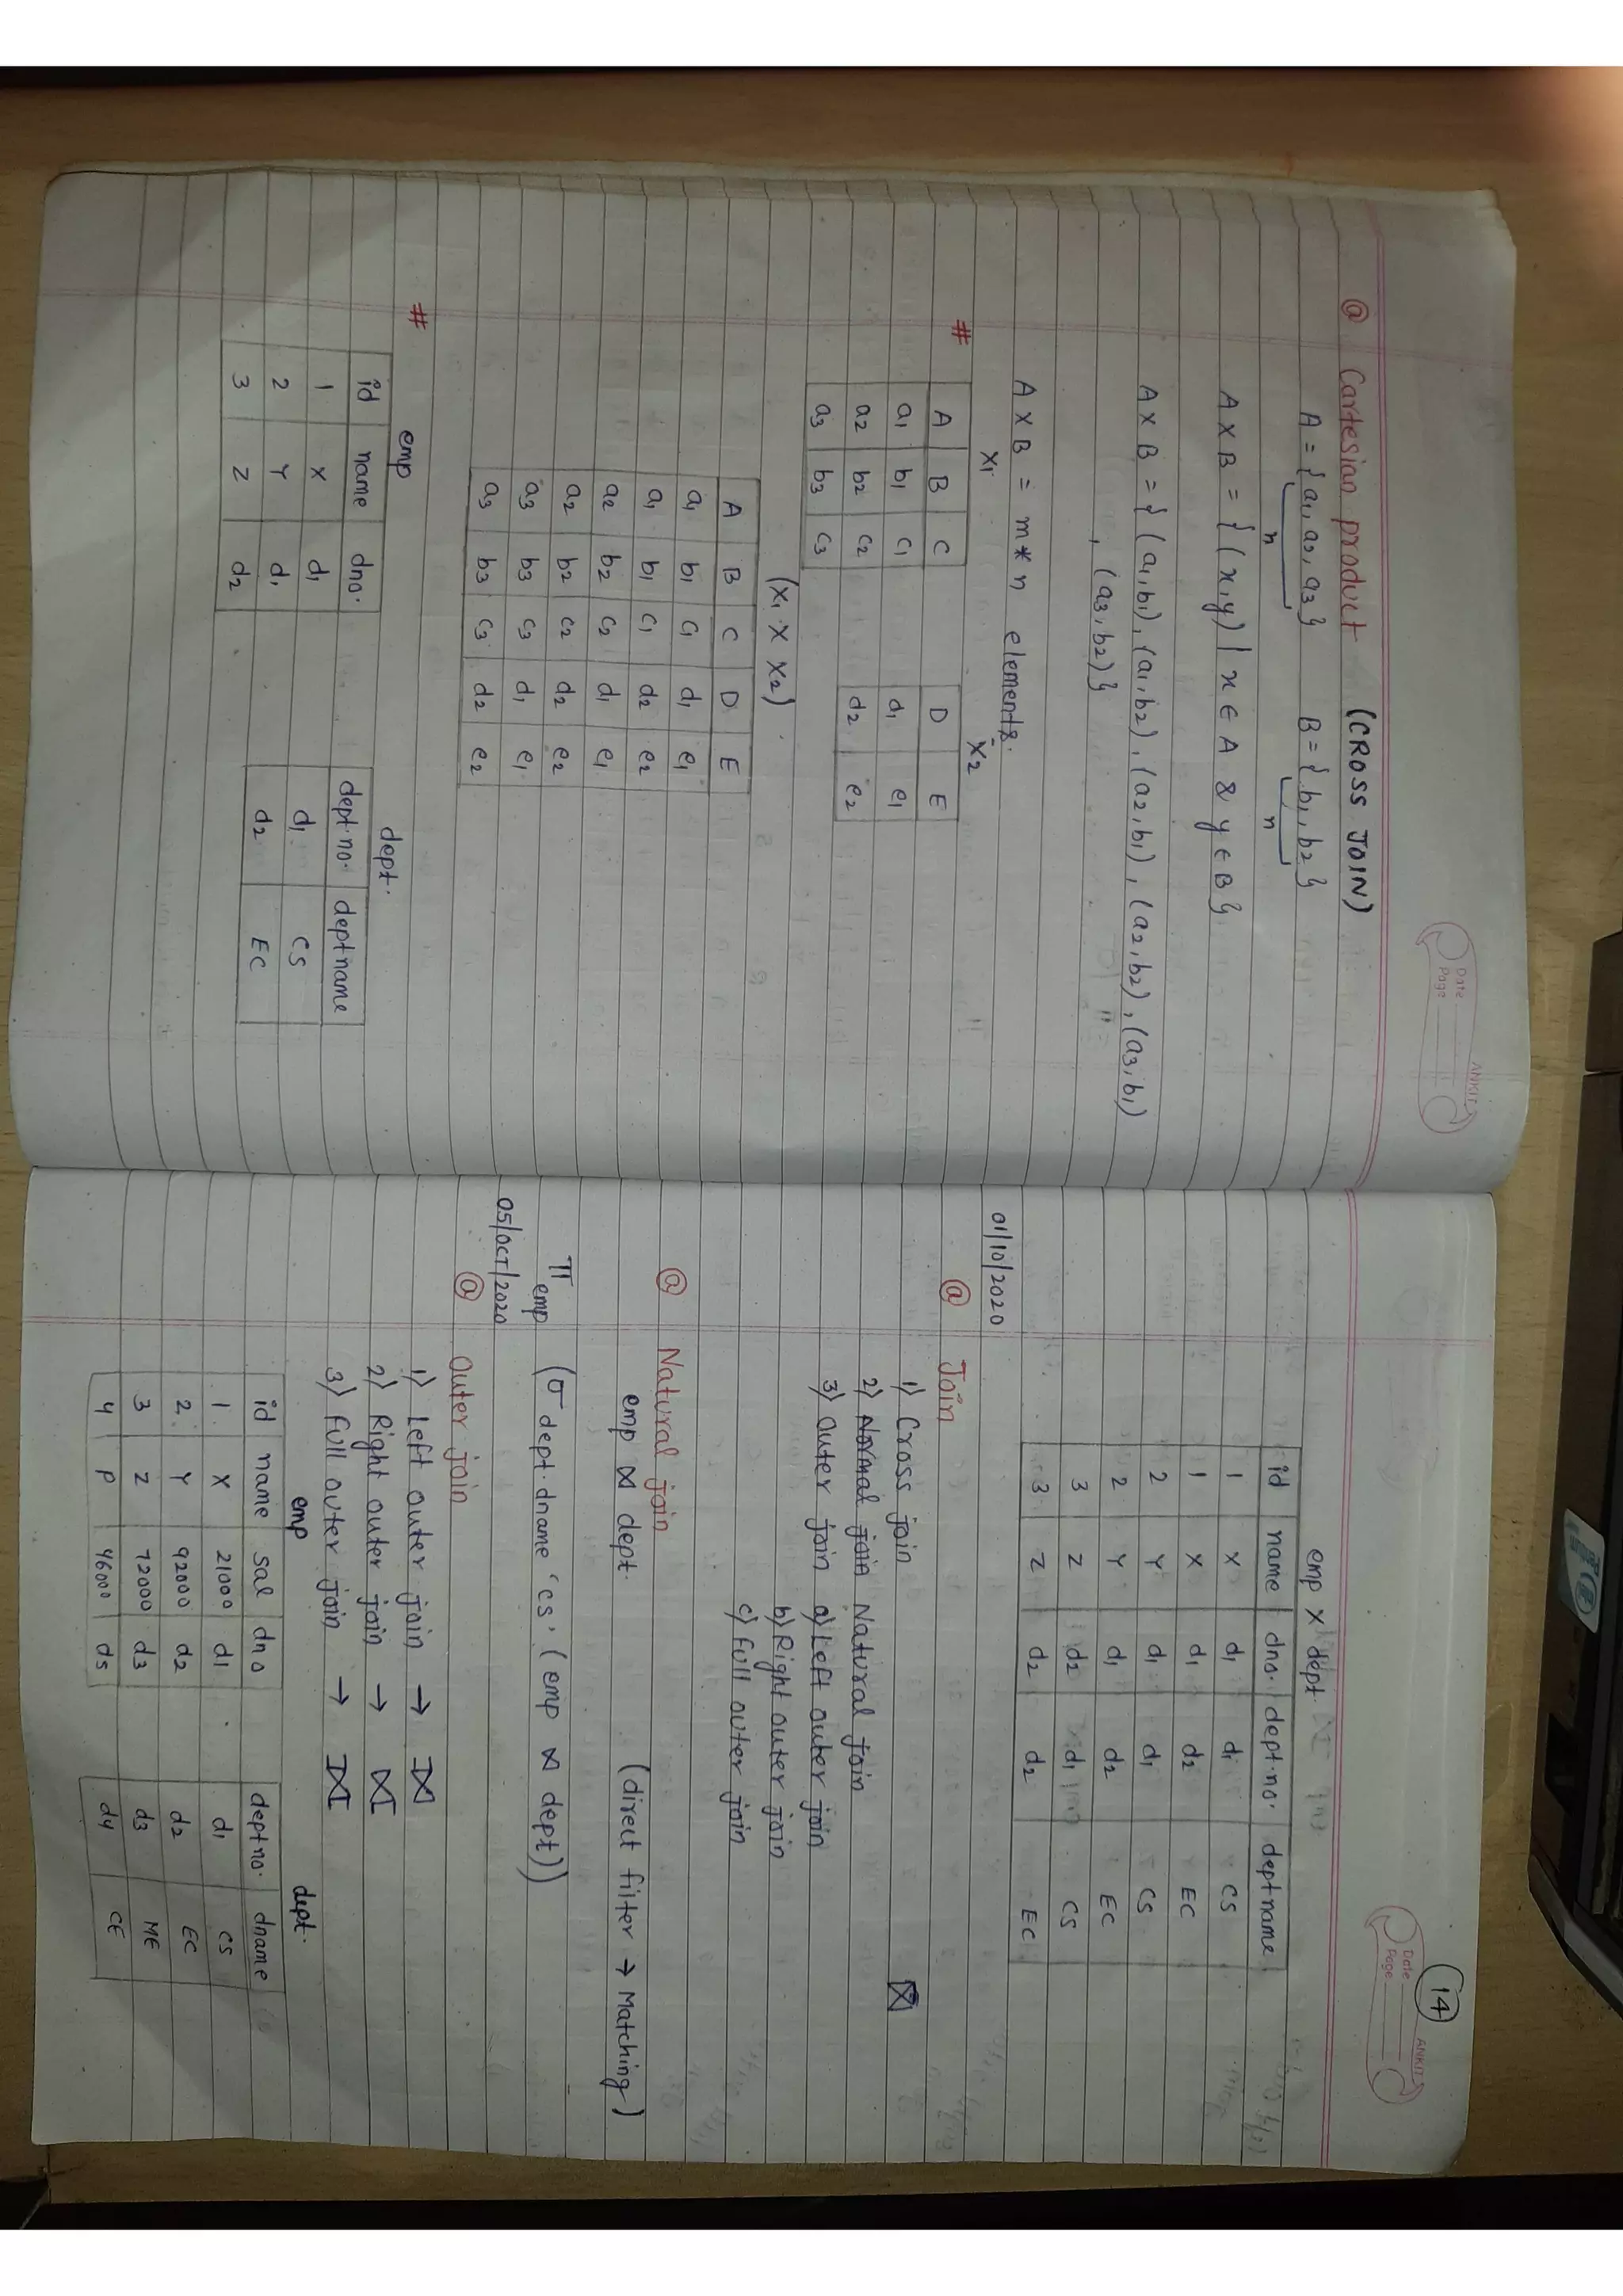 Date
Page
ANKIT
@ Cartesian product (CROSS JOIN)
A = {a1, a2, a3} B = {b1, b2}
n n
A X B = { (x,y) | x ∈ A & y ∈ B }
A X B = { (a1,b1), (a1,b2), (a2,b1), (a2,b2), (a3,b1)
, (a3,b2)}
A X B = m * n elements.
X1 X2
#
A B C D E
a1 b1 c1 d1 e1
a2 b2 c2 d2 e2
a3 b3 c3
(X1 X X2)
A B C D E
a1 b1 c1 d1 e1
a1 b1 c1 d2 e2
a2 b2 c2 d1 e1
a2 b2 c2 d2 e2
a3 b3 c3 d1 e1
a3 b3 c3 d2 e2
# emp dept.
id name dno. dept.no. deptname
1 X d1 d1 CS
2 Y d1 d2 EC
3 Z d2
14
Date
Page
ANKIT
emp X dept
id name dno. dept.no. deptname
1 X d1 d1 CS
1 X d1 d2 EC
2 Y d1 d1 CS
2 Y d1 d2 EC
3 Z d2 d1 CS
3 Z d2 d2 EC
01/10/2020
@ Join
1) Cross join ⋈
2) Normal join Natural join
3) Outer join a) Left outer join
b) Right outer join
c) full outer join
@ Natural join
emp ⋈ dept. (direct filter → Matching)
π emp (σ dept.dname 'CS' (emp ⋈ dept))
05/OCT/2020
@ Outer join
1) Left outer join → ⟕
2) Right outer join → ⟖
3) full outer join → ⟗
emp dept.
id name sal dno deptno. dname
1 X 21000 d1 d1 CS
2 Y 92000 d2 d2 EC
3 Z 72000 d3 d3 ME
4 P 46000 d5 d4 CE